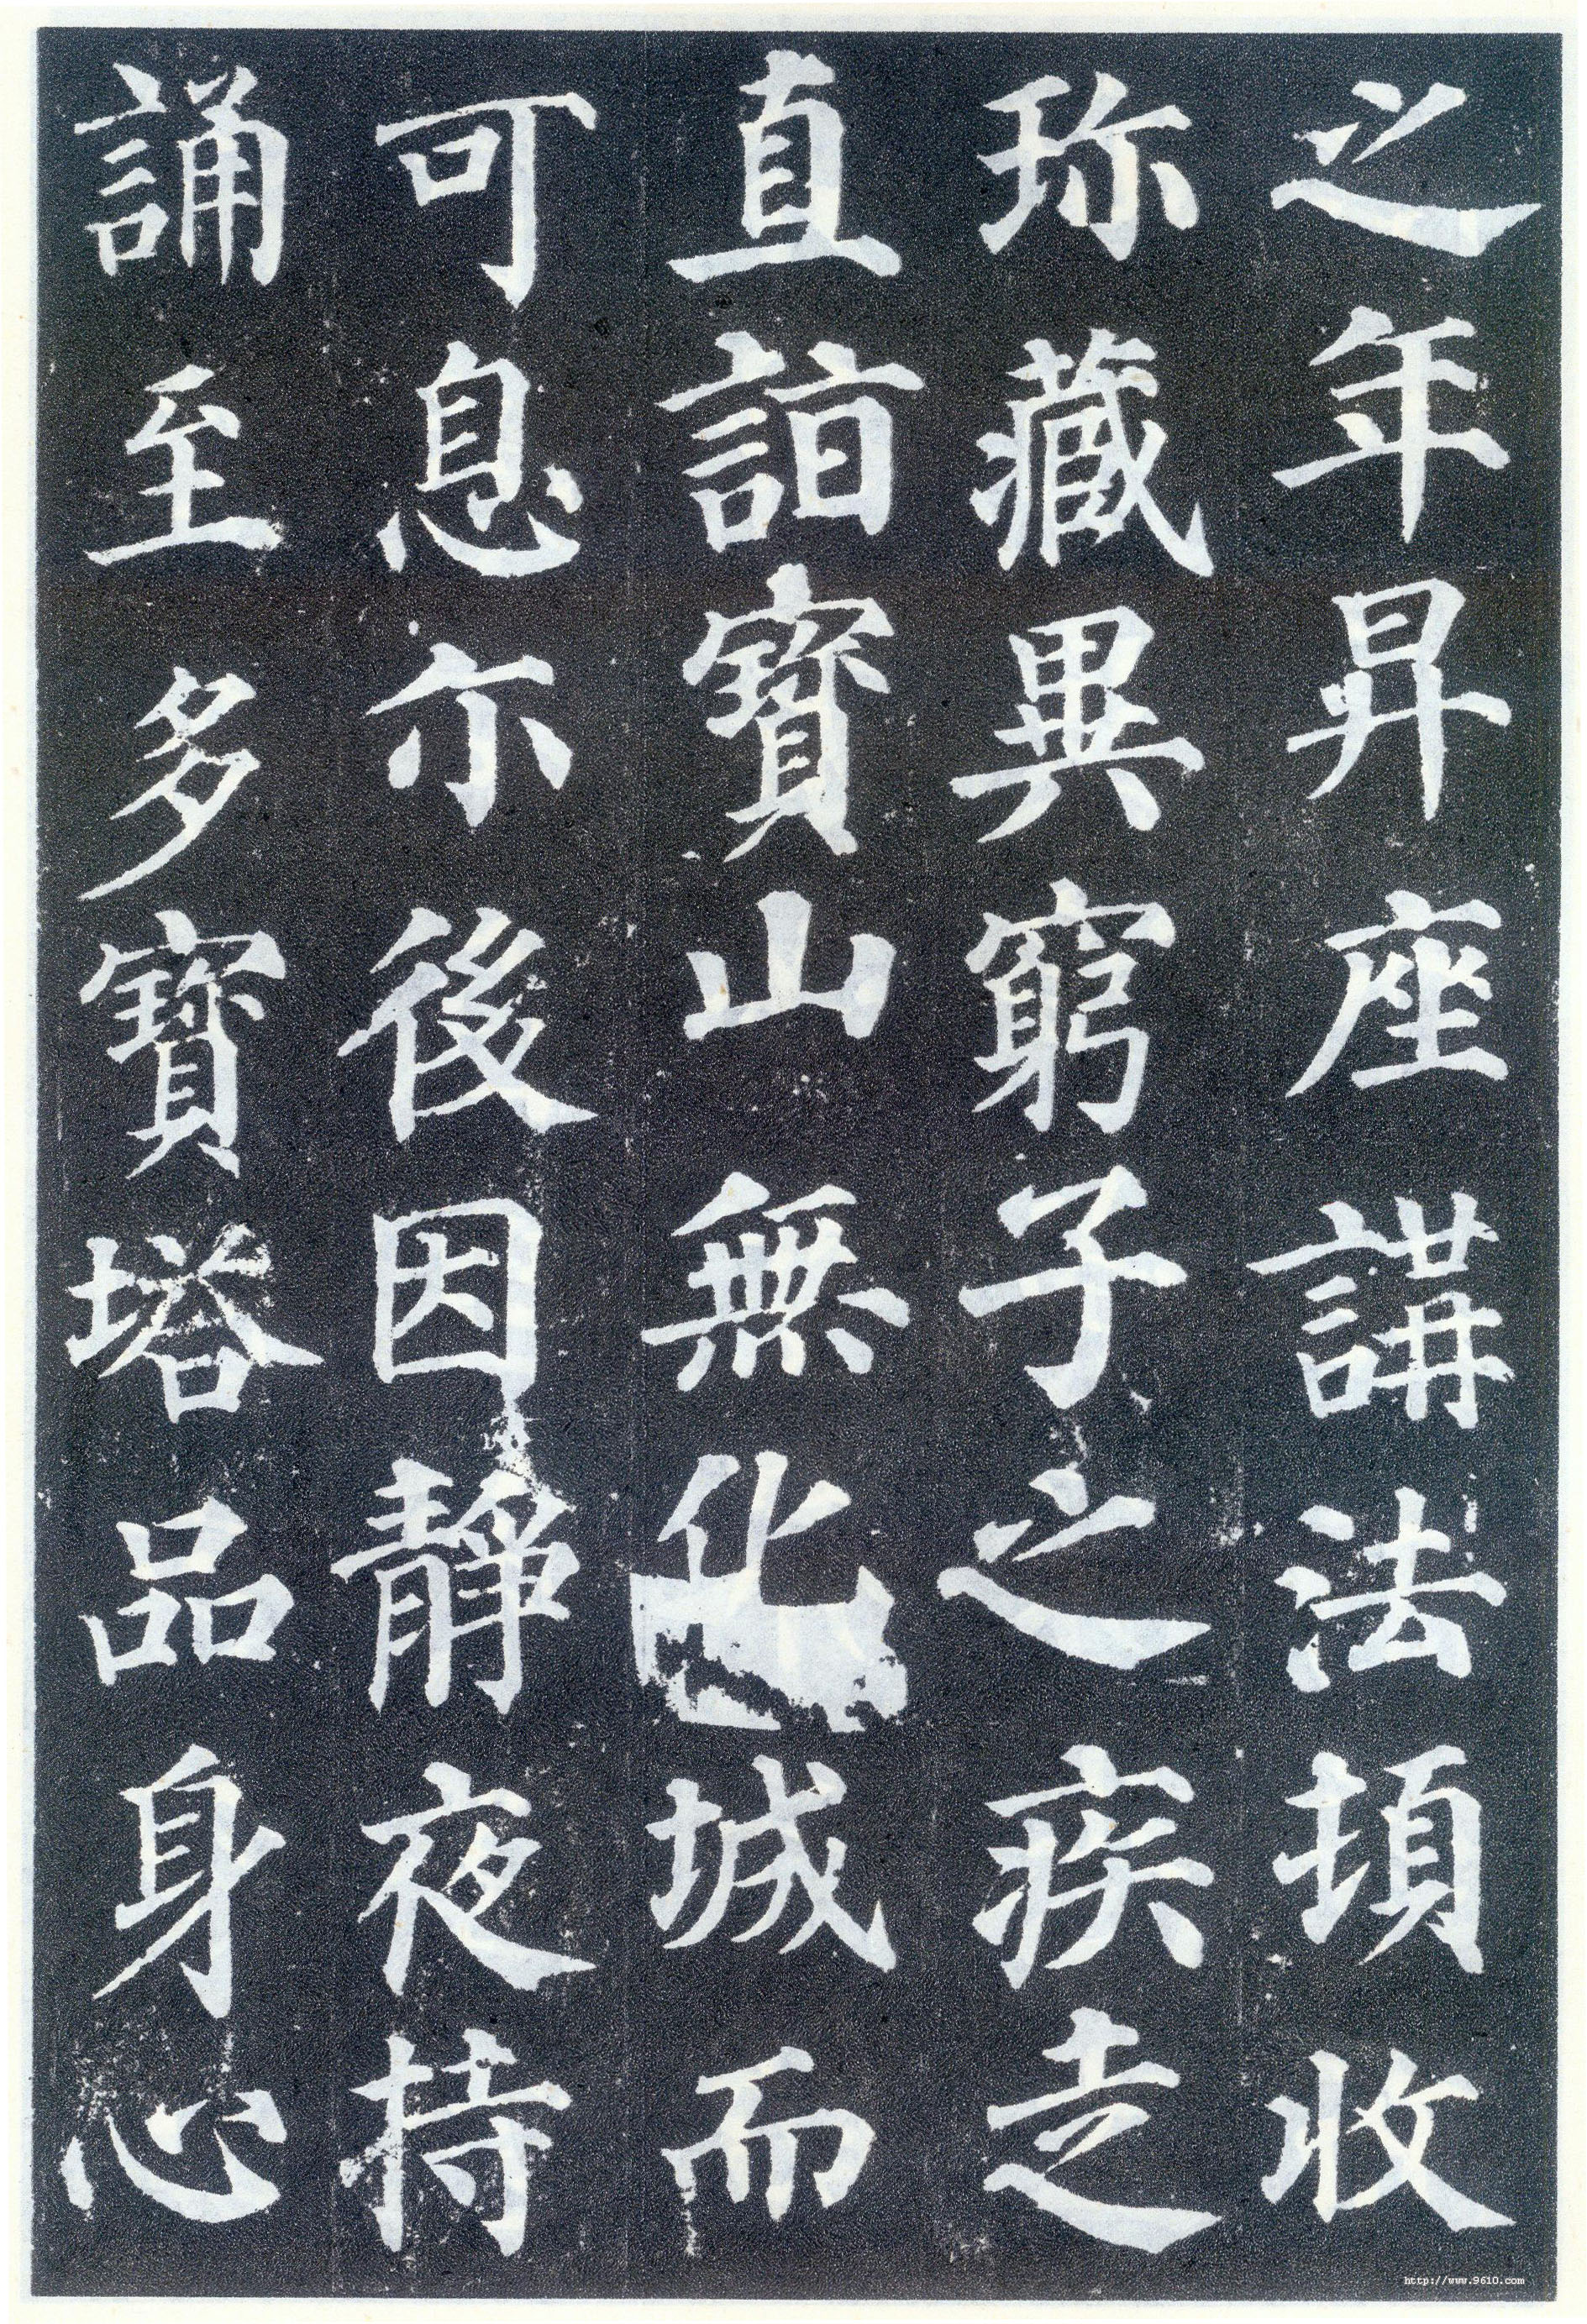 之年昇座講法頓收
珎藏異窮子之疾走
直詣寳山無化城而
可息尒後因靜夜持
誦至多寳塔品身心
http://www.9610.com